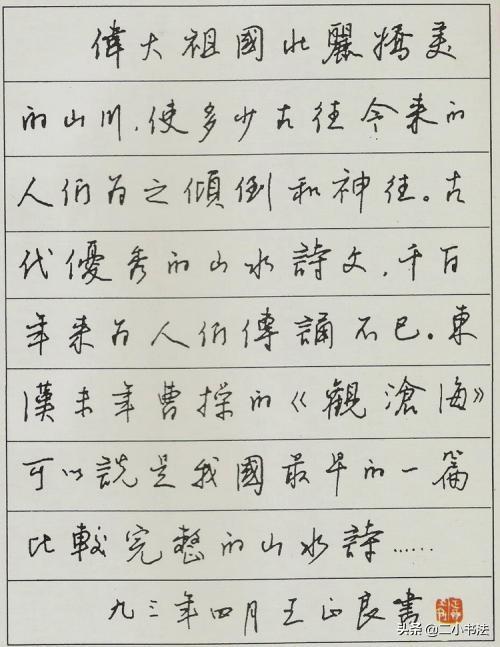 偉大祖國壯麗嬌美
的山川,使多少古往今来的
人们为之傾倒和神往。古
代優秀的山水詩文,千百
年来为人们傳誦不已。東
漢末年曹操的《觀滄海》
可以説是我國最早的一篇
比較完整的山水詩……
九三年四月王正良書
头条 @二小书法